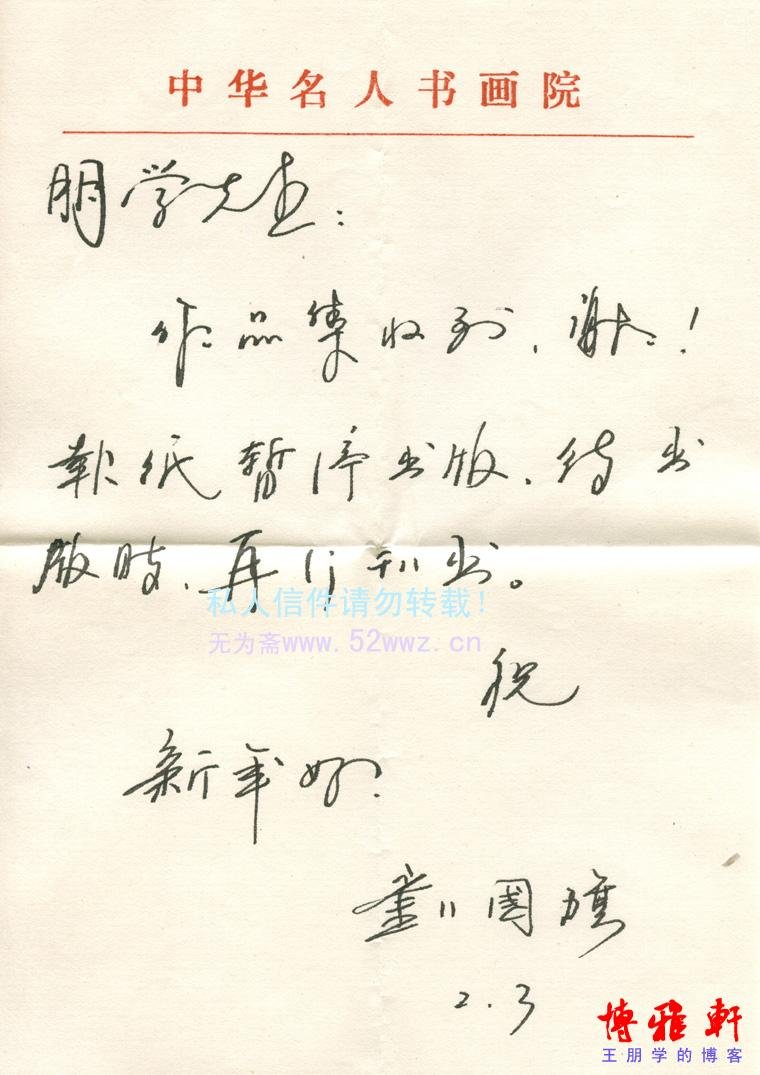 中华名人书画院
朋学先生:
作品集收到、谢谢!
報纸暂停出版、待出
版时、再行刊出。
私人信件请勿转载!
无为斋www.52wwz.cn
祝
新年好!
刘国旗
2.3
博雅軒
王朋学的博客